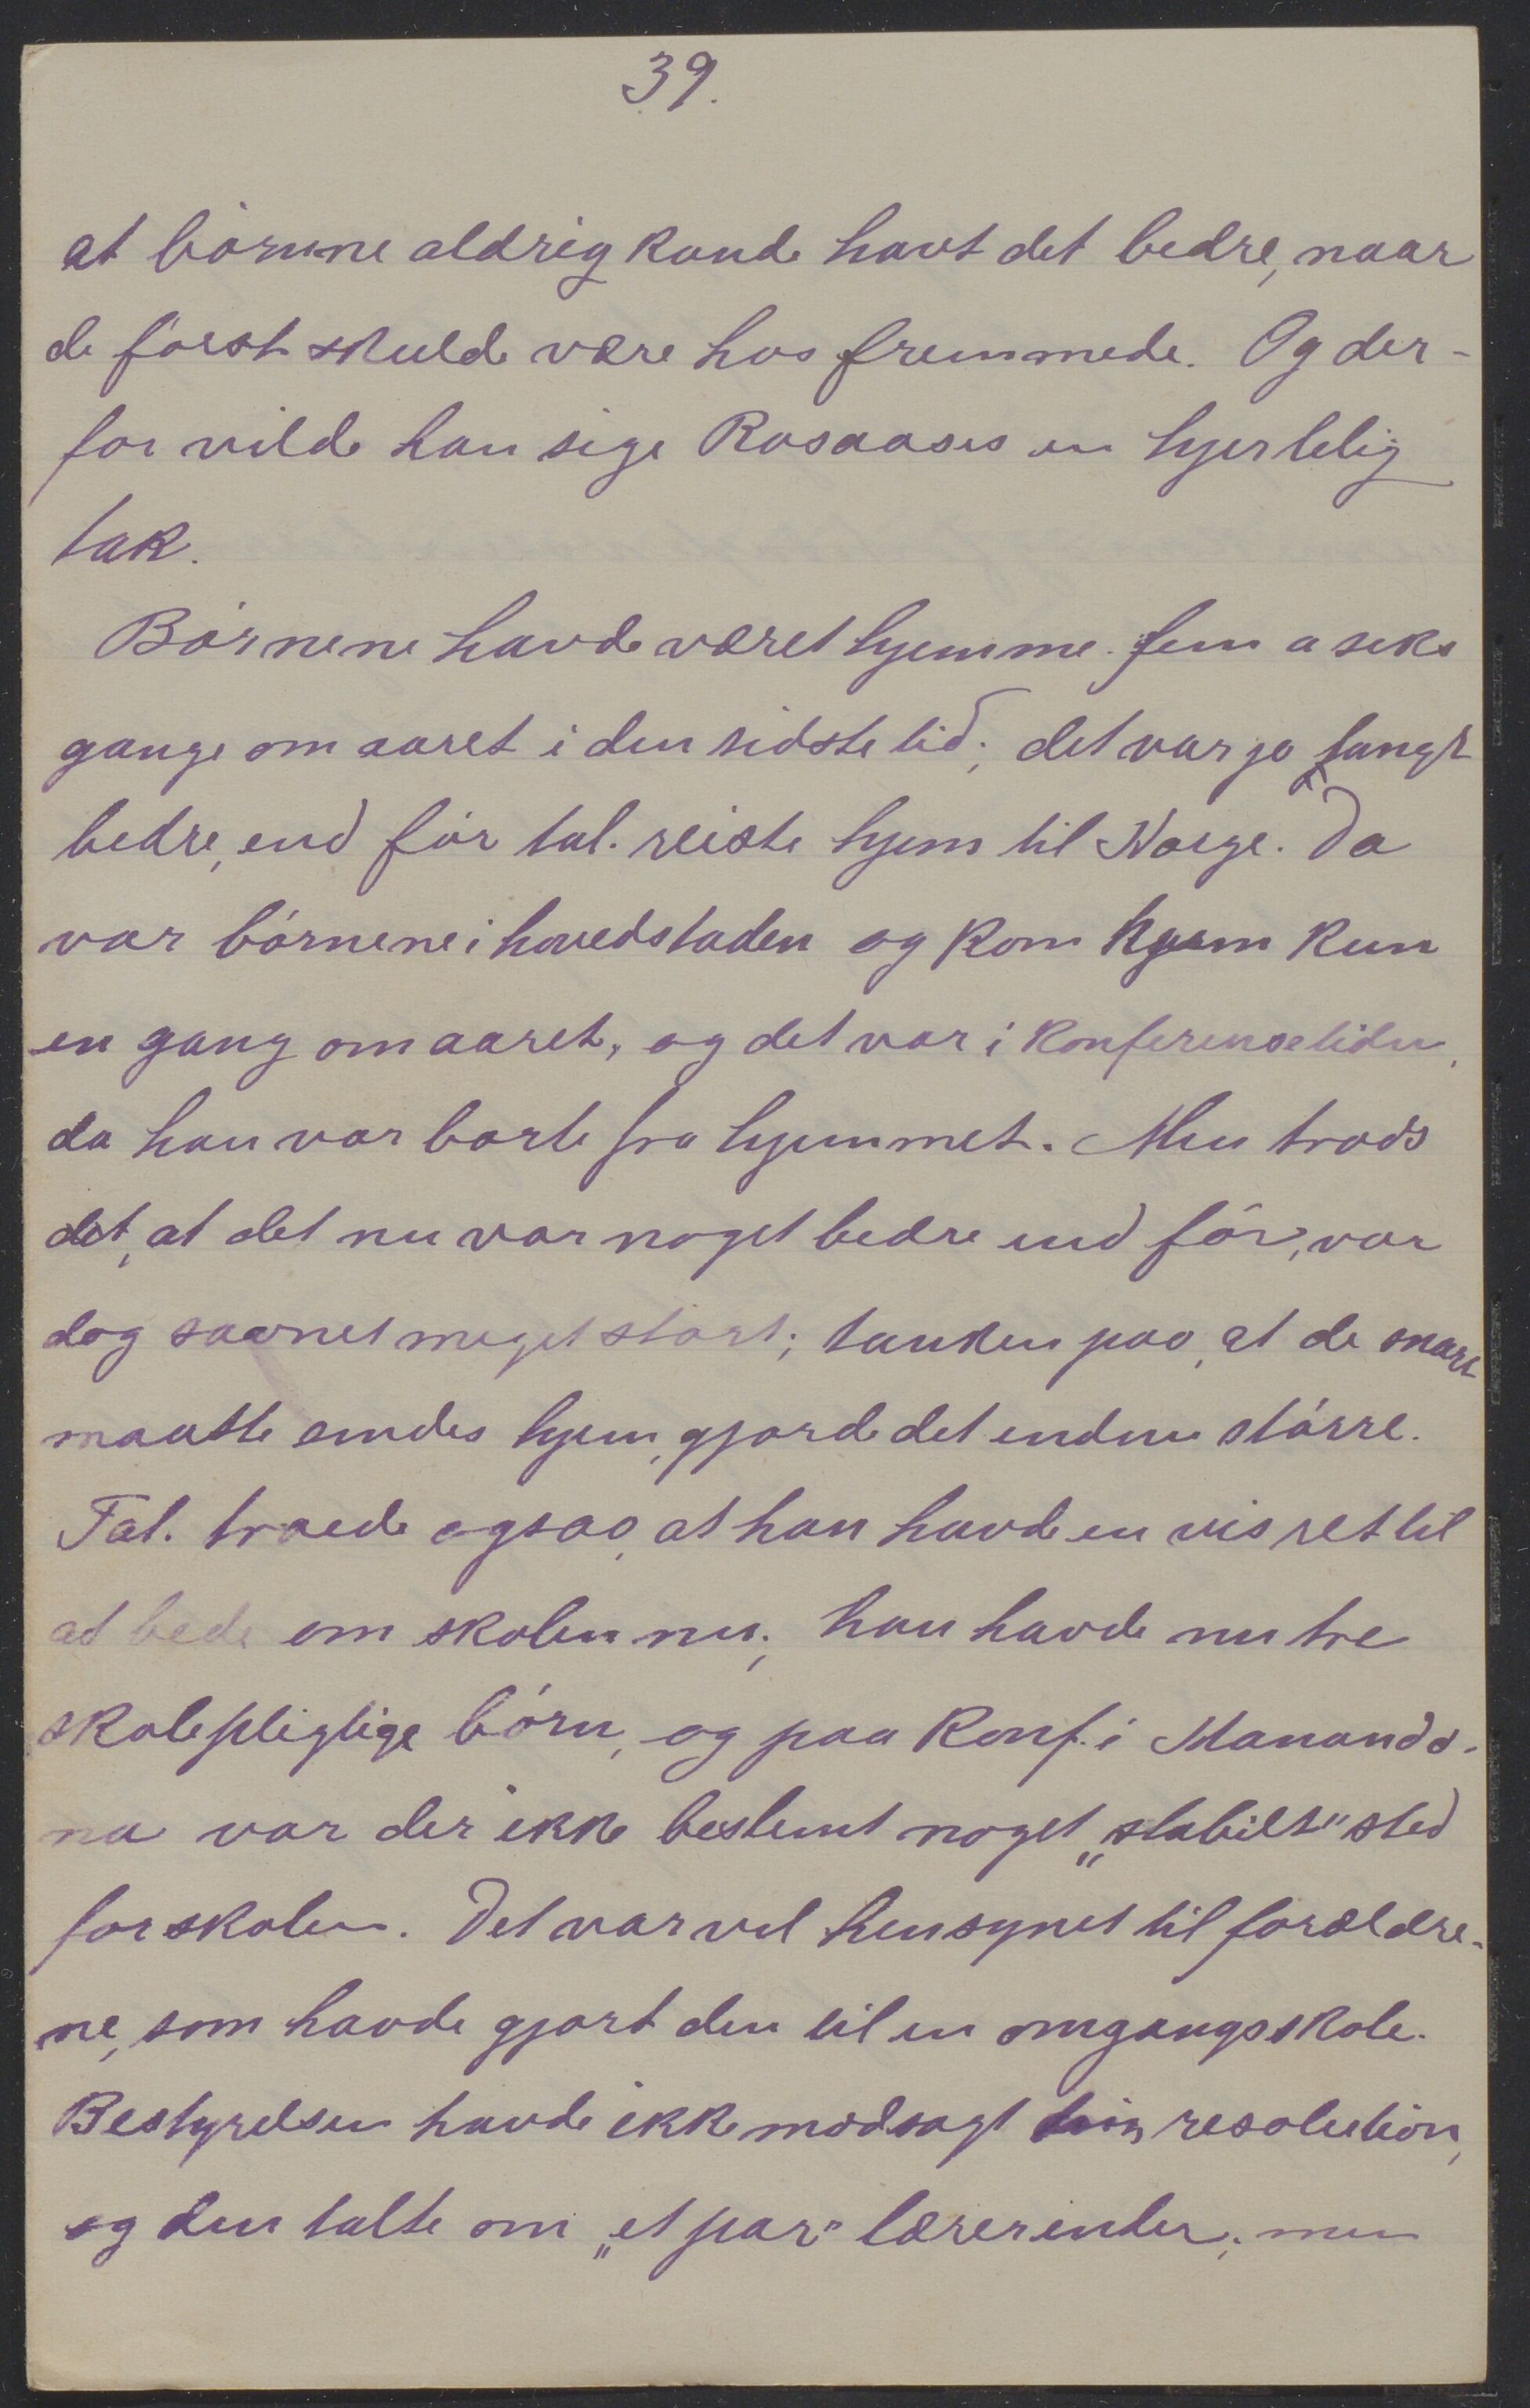 39.
at börnene aldrig kunde havt det bedre, naar
de først skulde være hos fremmede. Og der-
for vilde han sige Rosaases en hjertelig
tak.
Börnene havde været hjemme fem a seks
gange om aaret i den sidste tid; det var jo langt
bedre, end før tal. reiste hjem til Norge. Da
var börnene i hovedstaden og kom hjem kun
en gang om aaret, og det var i konferensetiden,
da han var borte fra hjemmet. Men trods
det, at det nu var noget bedre end før, var
dog savnet meget stort; tanken paa, at de snart
maatte sendes hjem, gjorde det endnu større.
Tal. troede ogsaa, at han havde en vis ret til
at bede om skolen nu; han havde nu tre
skolepligtige börn, og paa konf. i Manando-
na var der ikke bestemt noget „stabilt" sted
for skolen. Det var vel hensynet til forældre-
ne, som havde gjort den til en omgangsskole.
Bestyrelsen havde ikke modsagt hin resolution,
og den talte om „et par" lærerinder; men